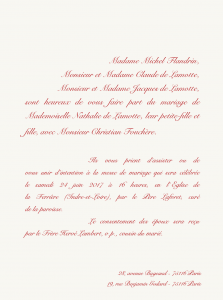 Madame Michel Flandrin,
Monsieur et Madame Claude de Lamotte,
Monsieur et Madame Jacques de Lamotte,
sont heureux de vous faire part du mariage de
Mademoiselle Nathalie de Lamotte, leur petite-fille et
fille, avec Monsieur Christian Fouchère.
Ils vous prient d'assister ou de
vous unir d'intention à la messe de mariage qui sera célébrée
le samedi 24 juin 2017 à 16 heures, en l'Église de
la Ferrière (Indre-et-Loire), par le Père Laforêt, curé
de la paroisse.
Le consentement des époux sera reçu
par le Frère Hervé Lambert, o.p., cousin du marié.
28, avenue Bugeaud - 75116 Paris
19, rue Benjamin Godard - 75116 Paris